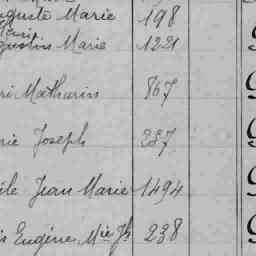 Auguste Marie 198
Henri
Augustin Marie 1221
ri Mathurin 867
rie Joseph 237
ile Jean Marie 1494
is Eugène Mie Jh 238